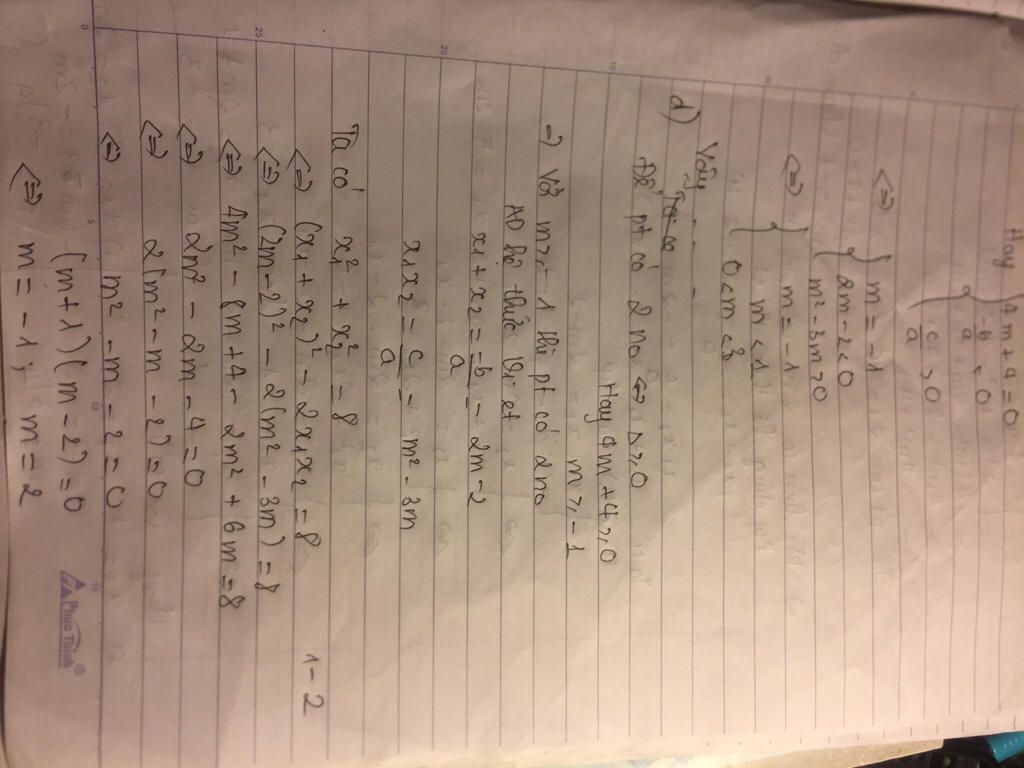 Hay { 4m + 4 = 0
-b/a < 0
c/a > 0
<=> { m = -1
2m - 2 < 0
m² - 3m > 0
<=> { m = -1
m < 1
0 < m < 3
Vậy - - -
d) Ta có
Để pt có 2 no <=> Δ ≥ 0
Hay 4m + 4 ≥ 0
m ≥ -1
=> Với m ≥ -1 thì pt có 2 no
AD hệ thức Vi-ét
x1 + x2 = -b/a = 2m - 2
x1x2 = c/a = m² - 3m
Ta có x1² + x2² = 8
<=> (x1 + x2)² - 2x1x2 = 8
1 - 2
<=> (2m - 2)² - 2(m² - 3m) = 8
<=> 4m² - 8m + 4 - 2m² + 6m = 8
<=> 2m² - 2m - 4 = 0
<=> 2(m² - m - 2) = 0
<=> m² - m - 2 = 0
(m + 1)(m - 2) = 0
<=> m = -1; m = 2
0 5 10 15
25
20
15
Phuc Thinh®